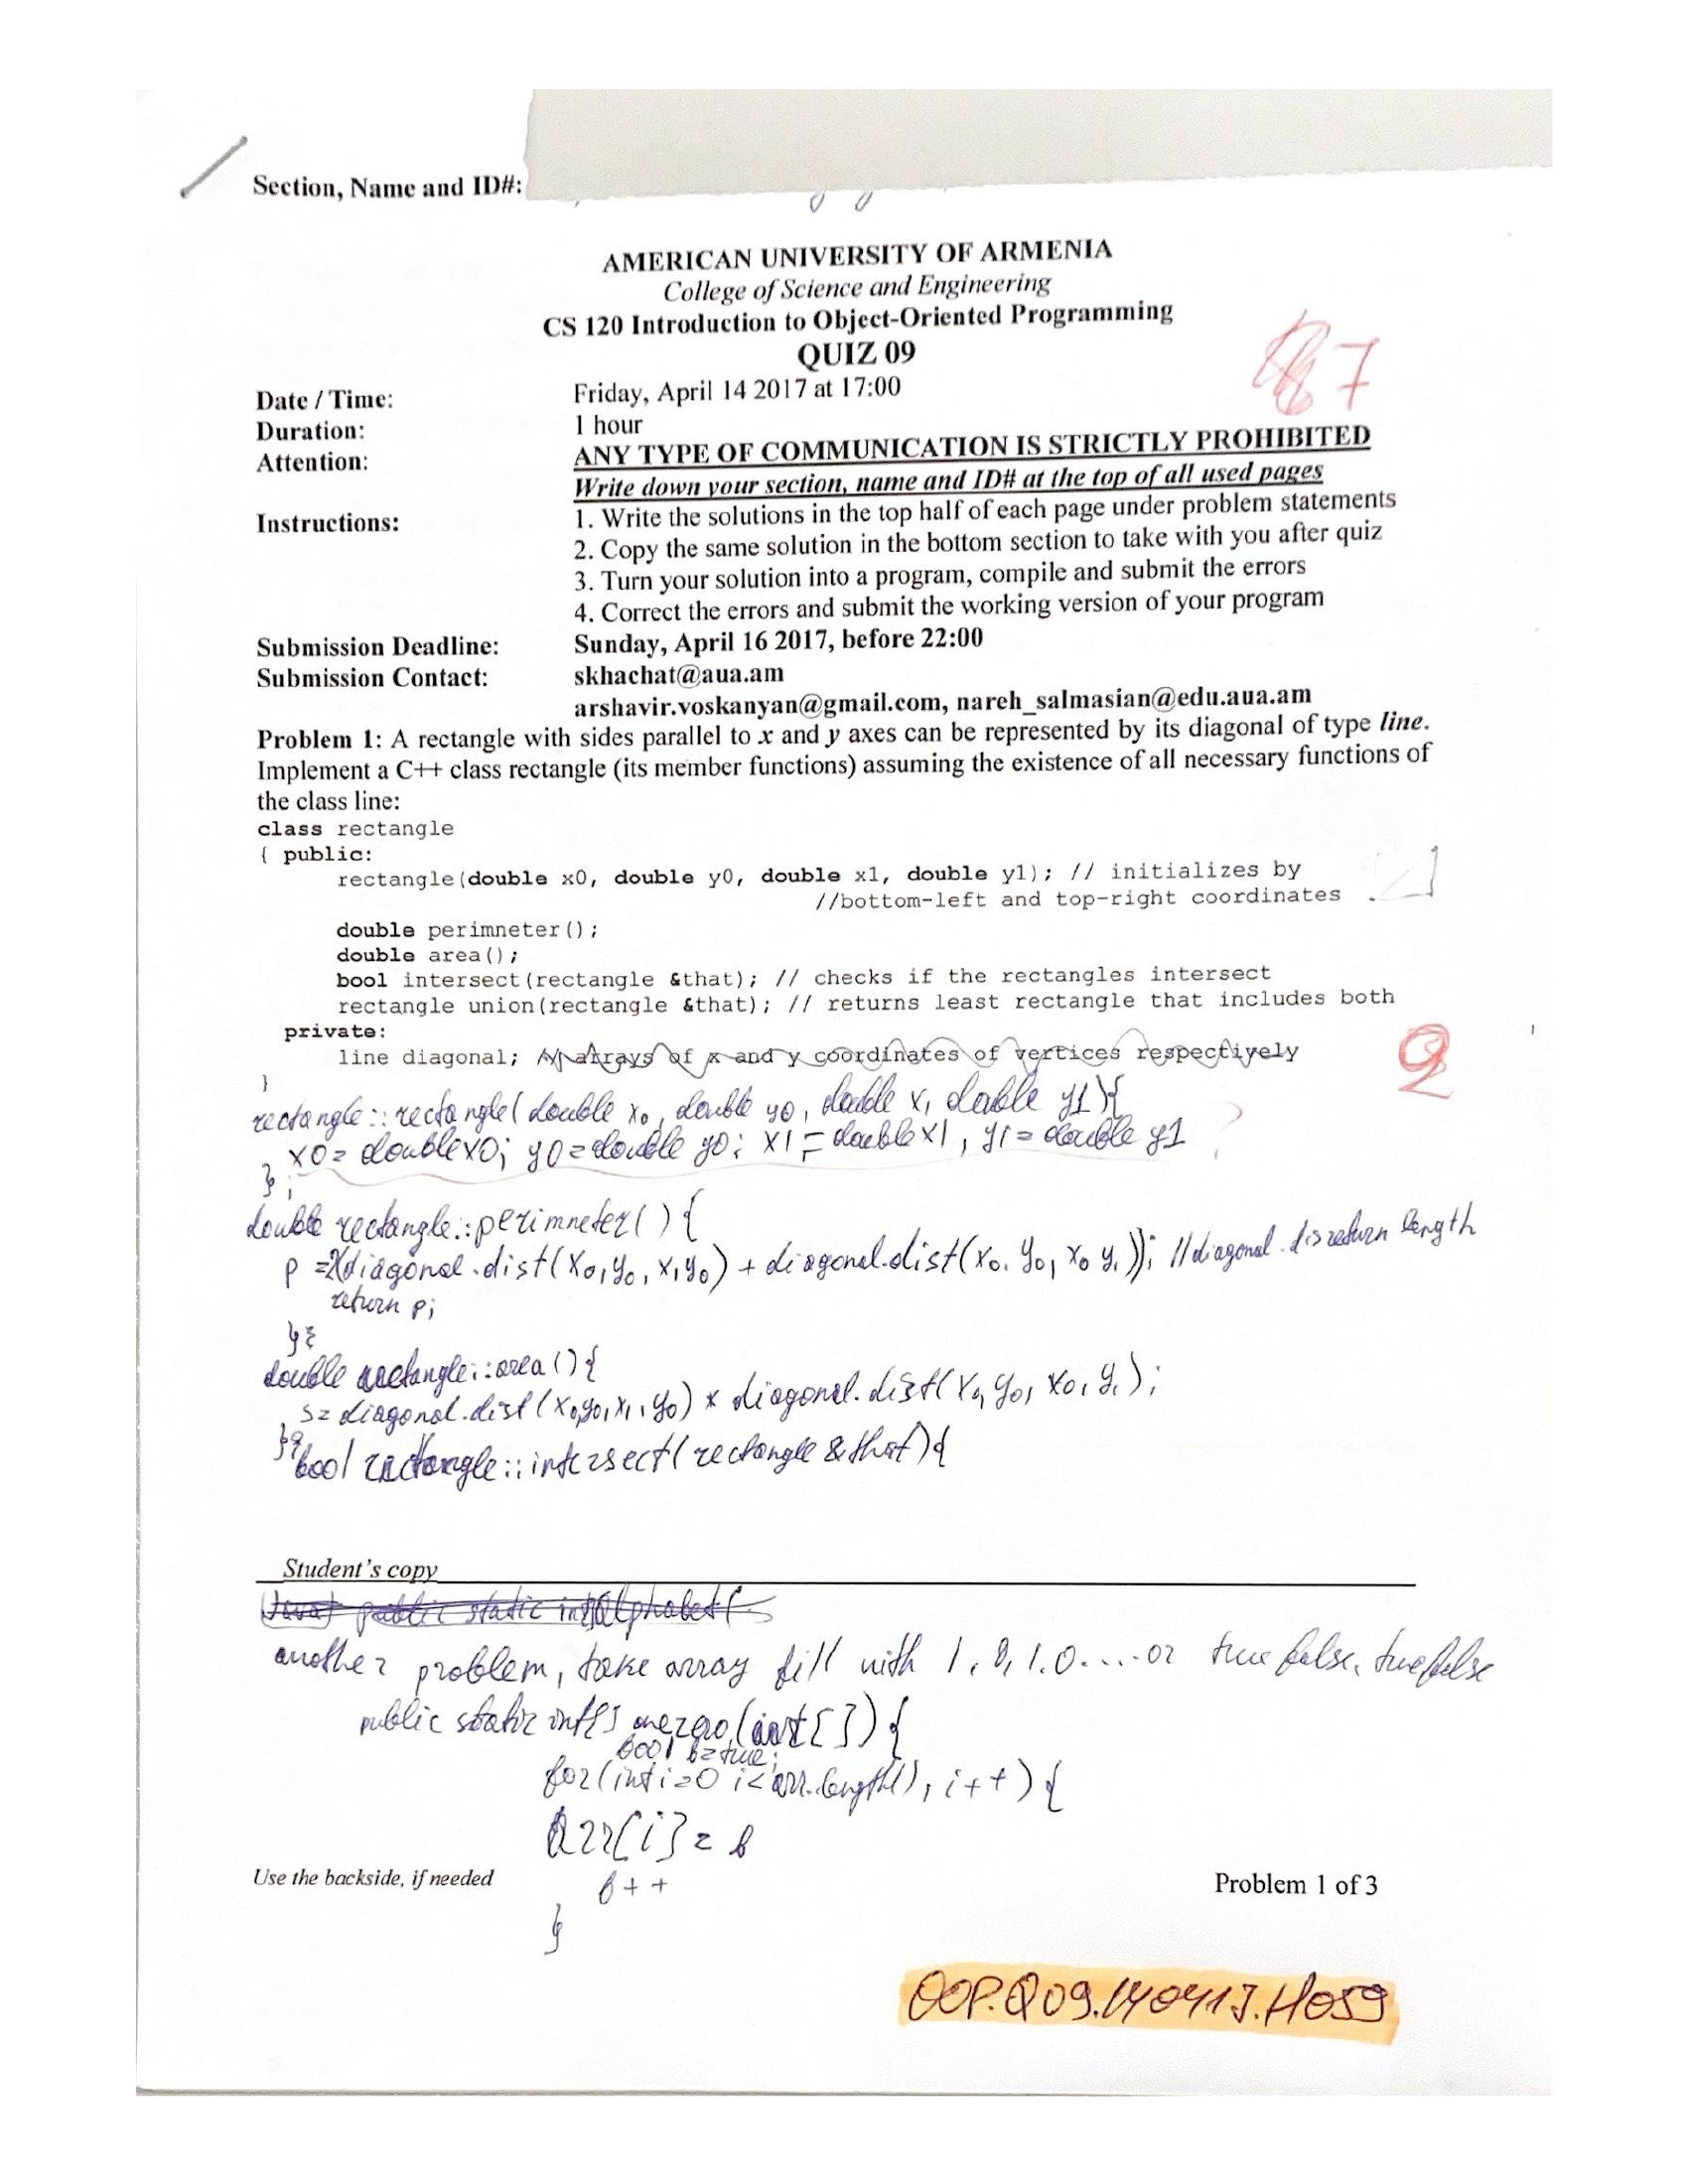 Section, Name and ID#:
AMERICAN UNIVERSITY OF ARMENIA
College of Science and Engineering
CS 120 Introduction to Object-Oriented Programming
QUIZ 09
7
Date / Time: Friday, April 14 2017 at 17:00
Duration: 1 hour
Attention: ANY TYPE OF COMMUNICATION IS STRICTLY PROHIBITED
Write down your section, name and ID# at the top of all used pages
Instructions: 1. Write the solutions in the top half of each page under problem statements
2. Copy the same solution in the bottom section to take with you after quiz
3. Turn your solution into a program, compile and submit the errors
4. Correct the errors and submit the working version of your program
Submission Deadline: Sunday, April 16 2017, before 22:00
Submission Contact: skhachat@aua.am
arshavir.voskanyan@gmail.com, nareh_salmasian@edu.aua.am
Problem 1: A rectangle with sides parallel to x and y axes can be represented by its diagonal of type line.
Implement a C++ class rectangle (its member functions) assuming the existence of all necessary functions of
the class line:
class rectangle
{ public:
rectangle(double x0, double y0, double x1, double y1); // initializes by
//bottom-left and top-right coordinates
double perimneter();
double area();
bool intersect(rectangle &that); // checks if the rectangles intersect
rectangle union(rectangle &that); // returns least rectangle that includes both
private:
line diagonal; // arrays of x and y coordinates of vertices respectively
}
2
rectangle::rectangle(double x0, double y0, double x1 double y1){
x0=double x0; y0=double y0; x1=double x1, y1=double y1 ?
};
double rectangle::perimneter(){
p =2(diagonal.dist(x0,y0,x1y0) + diagonal.dist(x0,y0,x0 y1)); //diagonal.dis return length
return p;
};
double rectangle::area(){
s=diagonal.dist(x0,y0,x1,y0) * diagonal.dist(x0,y0,x0,y1);
};
bool rectangle::intersect(rectangle &that){
Student's copy
(Java) public static int Alphabet(
another problem, take array fill with 1,0,1.0....or true false, true false
public static int[] onezero(int[]){
bool b=true;
for(int i=0 i<arr.length(), i++){
Arr[i]=b
b++
}
Use the backside, if needed
Problem 1 of 3
OOP.Q09.140417.H059